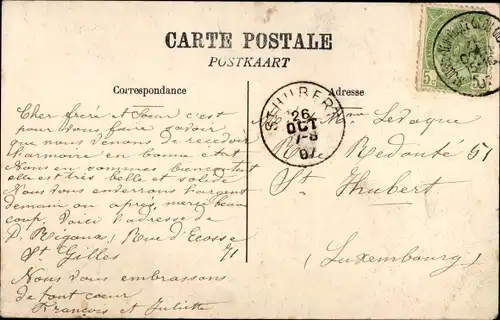 CARTE POSTALE
POSTKAART
Correspondance
Adresse
5 c
ST HUBERT
26
OCT
7-8
07
Cher frére et Sœur c'est
pour vous faire savoir
que nous venons de recevoir
l'armoire en bonne état
Nous en sommes bien content
elle est très belle et solide
Nous vous enderrons l'argent
demain ou après, merci beau
coup. Voici l'adresse de
Rue d'Ecosse
71
St Gilles
Nous vous embrassons
de tout cœur
François et Juliette
Ledaque
Rue Redouté 51
St Hubert
(Luxembourg)